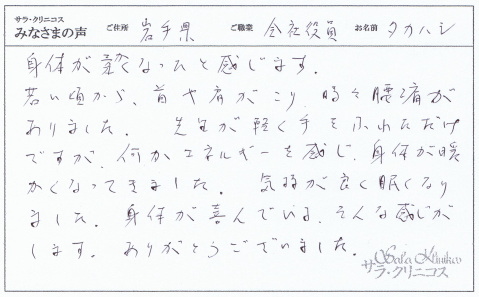 サラ・クリニコス
みなさまの声 ご住所 岩手県 ご職業 会社役員 お名前 タカハシ
身体が軽くなったと感じます。
若い頃から、首や肩がこり、時々腰痛が
ありました。 先生が軽く手をふれただけ
ですが、何かエネルギーを感じ、身体が暖
かくなってきました。 気持が良く眠くなり
ました。身体が喜んでいる、そんな感じが
します。ありがとうございました。
Sala Klinikos
サラ・クリニコス